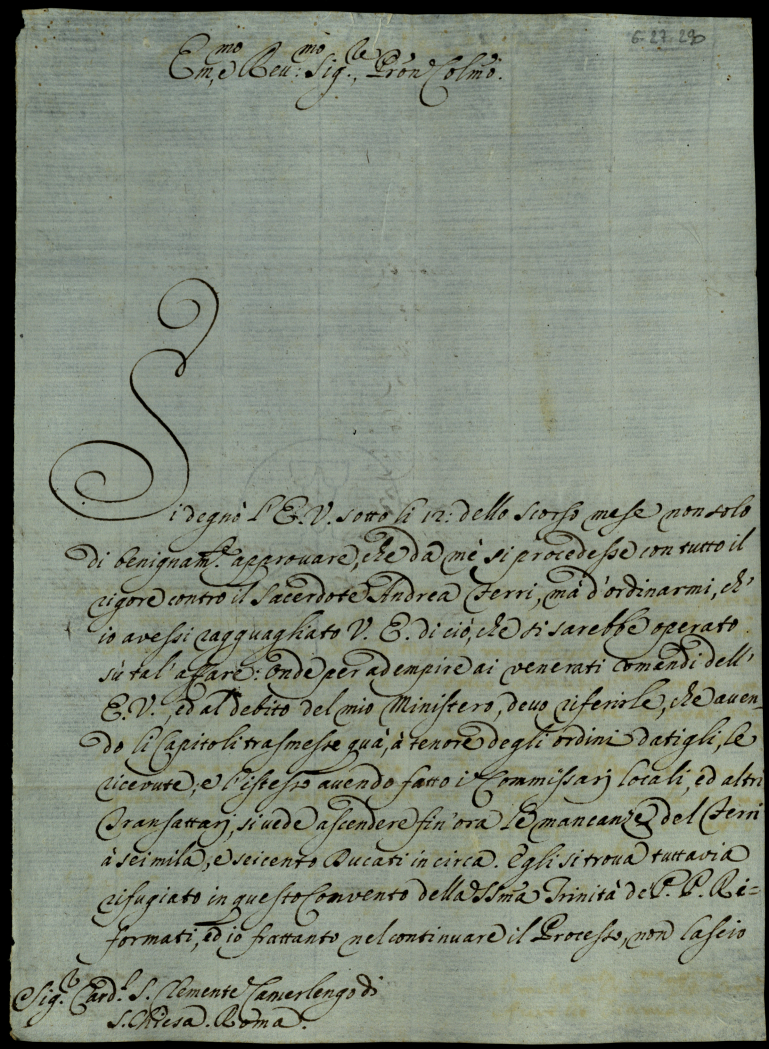 6-27-28
Em.mo e Reu:mo Sig.re, Pron Colmo.
Si degnò l'E. V. sotto li 12: dello scorso mese non solo
di benignam.te approvare, che da mè si procedesse con tutto il
rigore contro il Sacerdote Andrea Ferri, mà d'ordinarmi, ch'
io avessi ragguagliato V. E. di ciò, che si sarebbe operato
sù tal'affare: Onde per adempire ai venerati comandi dell'
E. V., ed al debito del mio Ministero, devo riferirle, che auen-
do li Capitoli trasmesse quà, à tenore degli ordini datigli, le
ricevute, e l'istesso auendo fatto i Commissarj locali, ed altri
Transattarj, si vede ascendere fin'ora le mancanze del Ferri
à seimila, e seicento Ducati in circa. Egli si trova tuttavia
rifugiato in questo Convento della SSma Trinità de P. P. Ri=
formati, ed io frattanto nel continuare il Processo, non lascio
Sig.r Card.l S. Clemente Camerlengo di
S. Chiesa. Roma.